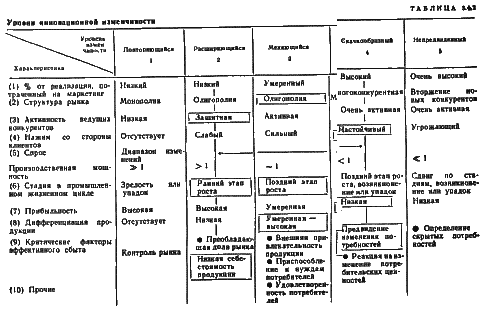 ТАБЛИЦА 3.4.3
Уровни инновационной изменчивости
Уровень
измен-
чивости
Характеристика
Повторяющийся
1
Расширяющийся
2
Меняющийся
3
Скачкообразный
4
Непредвиденный
5
(1) % от реализации, по-
траченный на маркетинг
Низкий
Низкий
Умеренный
Высокий
Очень высокий
(2) Структура рынка
Монополия
Олигополия
Олигополия
Многоконкурентная
Вторжение но-
вых конкурентов
(3) Активность ведущих
конкурентов
Низкая
Защитная
Активная
Очень активная
Очень активная
(4) Нажим со стороны
клиентов
Отсутствует
Слабый
Сильный
Настойчивый
Угрожающий
(5) Спрос
Производственная мощ-
ность
Диапазон изме-
нений
> 1
> 1
~ 1
< 1
≪ 1
(6) Стадия в промышлен-
ном жизненном цикле
Зрелость или
упадок
Ранний этап
роста
Поздний этап
роста
Поздний этап ро-
ста, возникнове-
ние или упадок
Сдвиг по ста-
диям, возникнове-
ние или упадок
(7) Прибыльность
Высокая
Высокая
Умеренная
Низкая
Низкая
(8) Дифференциация про-
дукции
Отсутствует
Низкая
Умеренная —
высокая
(9) Критические факторы
эффективного сбыта
Контроль рынка
● Преобладаю-
щая доля рынка
Низкая себе-
стоимость
продукции
● Внешняя при-
влекательность
продукции
● Приспособле-
ние к нуждам
потребителей
● Удовлетворен-
ность потребите-
лей
Предвидение
изменения по-
требностей
● Реакция на из-
менение потре-
бительских цен-
ностей
● Определение
скрытых потреб-
ностей
(10) Прочие